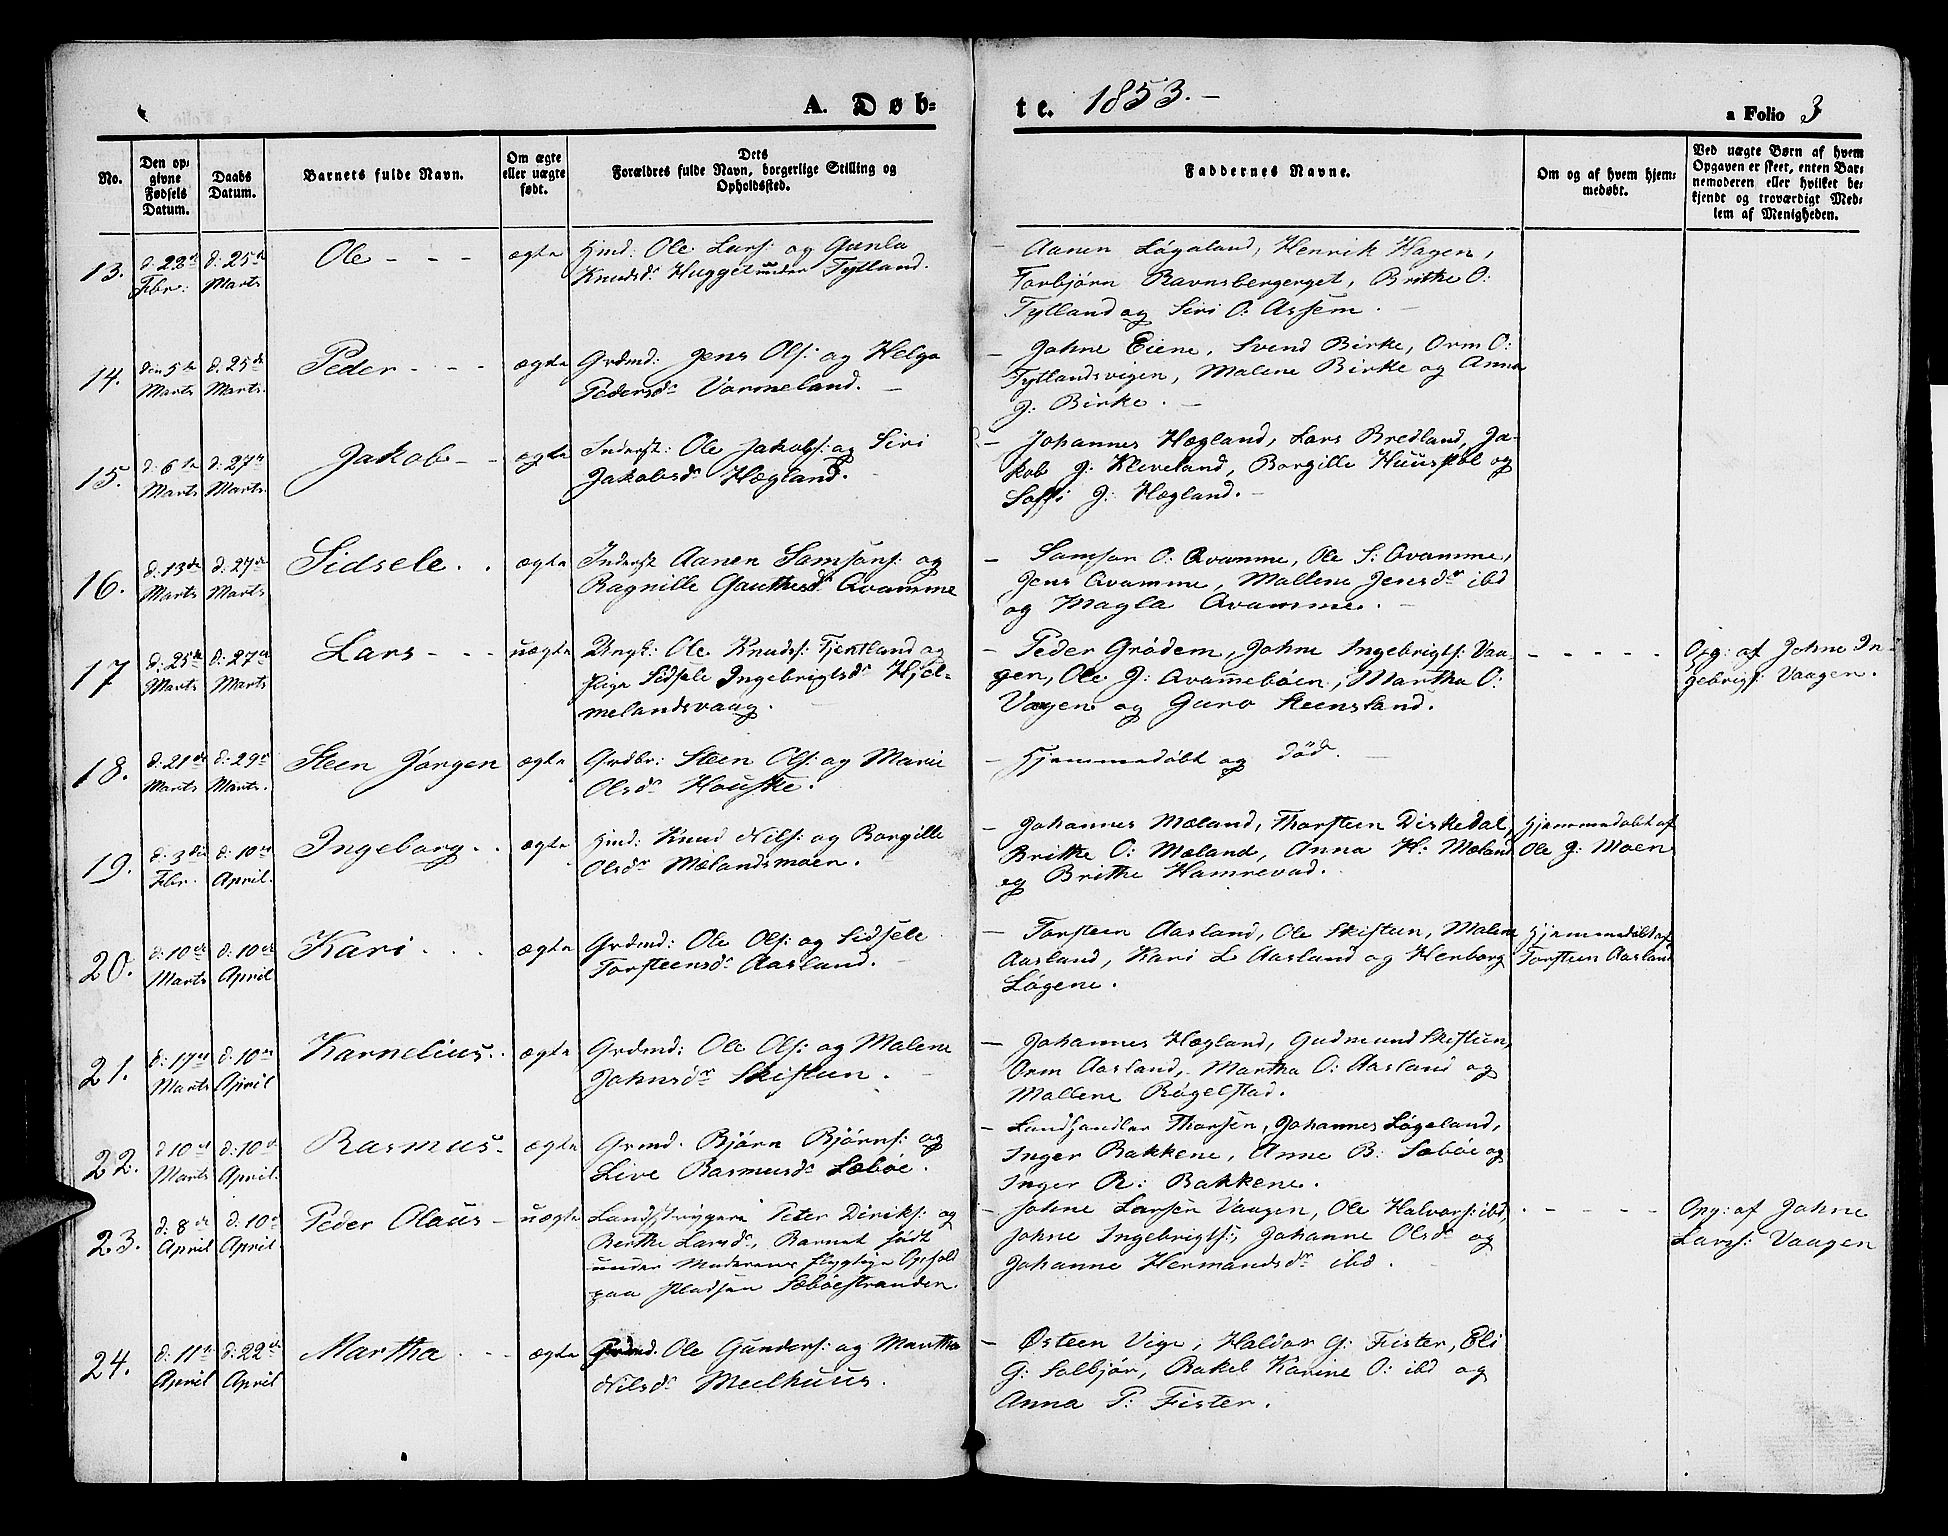 A. Døb-
te. 1853.-
a Folio 3
No.
Den op-
givne
Fødsels
Datum.
Daabs
Datum.
Barnets fulde Navn.
Om ægte
eller uægte
født.
Dets
Forældres fulde Navn, borgerlige Stilling og
Opholdssted.
Faddernes Navne.
Om og af hvem hjem-
medøbt.
Ved uægte Børn af hvem
Opgaven er skeet, enten Bar-
nemoderen eller hvilket be-
kjendt og troværdigt Med-
lem af Menigheden.
13.
Fbr:
d: 25
Marts
Ole - - -
ægte
Hmd: Ole Lars: og Gunla
Knudsdr Hugget under Tytland.
- Aanen Løgaland, Henrik Hagen,
Torbjörn Ravnsbergerget, Brithe O:
Tylland og Siri O: Assem. -
14.
den 5te
Marts
d: 25de
Marts.
Peder - - -
ægte
Grdmd: Jens Ols: og Helga
Pedersdr Vormeland. -
- Johne Eiene, Svend Birke, Orm O:
Tytlandsvigen, Malene Birke og Anna
J: Birke. -
15.
d: 6te
Marts
d: 27de
Marts.
Jakob - -
ægte
Inderst: Ole Jakobs: og Siri
Jakobsdr Hægland. -
- Johannes Hægland, Lars Bredland, Ja-
kob J: Kleveland, Borgille Huuskol og
Soffi J: Hægland. -
16.
d: 13de
Marts
d: 27de
Marts
Sidsele. .
ægte
Inderst Aanen Samsons: og
Ragnille Gauthesdr Qvamme
- Samson O: Qvamme, Ole S: Qvamme,
Jens Qvamme, Mallene Jensdr ibd
og Magla Qvamme. -
17
d: 25de
Marts
d: 27de
Marts
Lars - - -
uægte
Ungk: Ole Knuds: Fjentland og
Pige Sidsele Ingebrigtsdr Hjel-
melandsvaag. -
- Peder Grödem, Johne Ingebrigts: Vaa-
gen, Ole J: Qvamebøen, Martha O:
Vaagen og Guro Steensland.
- - - - -
Opg: af Johne In-
gebrigts: Vaagen.
18.
d: 21de
Marts
d: 29
Marts.
Steen Jørgen
ægte
Grdbr: Steen Ols: og Marie
Olsdr Houske.
- Hjemmedøbt og död. -
19.
d: 3die
Fbr.
d: 10de
April.
Ingeborg. .
ægte
Hmd: Knud Nils: og Borgille
Olsdr Mælandsmoen.
- Johannes Mæland, Thorsteen Dirkedal,
Brithe O: Mæland, Anna H: Mæland
og Brithe Hamrevad.
Hjemmedøbt af
Ole J: Moen
20.
d: 10de
Marts
d: 10de
April
Kari . . .
ægte
Grdmd: Ole Ols: og Sidsele
Torsteensdr Aasland. -
- Torsteen Aasland, Ole Skiftun, Malene
Aasland, Kari L Aasland og Herborg
Løgene.
Hjemmedøbt af
Torsteen Aasland
21.
d: 17de
Marts
d: 10de
April
Karnelius. .
ægte
Grdmd: Ole Ols: og Malene
Johnsdr Skiftun. -
- Johannes Hægland, Gudmund Skiftun,
Orm Aasland, Martha O: Aasland og
Mallene Røgelstad.
22.
d 10de
Marts
d: 10de
April.
Rasmus.
ægte
Grmd. Bjørn Bjørns: og
Live Rasmusdr Sæbøe.
- Landhandler Thorsen, Johannes Løgeland,
Inger Bakkene, Anne B: Sæbøe og
Inger R: Bakkene.
23.
d: 8de
April
d: 10de
April.
Peder Olaus -
uægte
Landstrygere Peter Diriks: og
Berthe Larsdr, Barnet født
under Moderens flygtige Ophold
paa Pladsen Sæbøestranden.
- Johne Larsen Vaagen, Ole Halvors: ibd,
Johne Ingebrigts:, Johanne Olsdr og
Johanne Hermandsdr ibd. -
- - - - -
Opg: af Johne
Lars: Vaagen
24.
d: 11te
April
d: 22de
April
Martha . - -
ægte
Grdmd. Ole Gunders: og Martha
Nilsdr Meelhuus.
- Østeen Vige, Haldor G: Fister, Eli
G: Solbjør, Rakel Karine O: ibd og
Anna P: Fister.